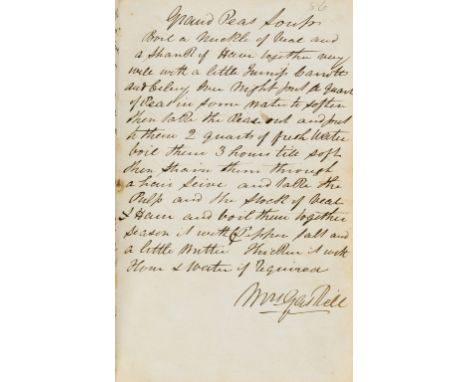 56
Grand Peas Soup
Boil a Knuckle of Veal and
a Shank of Ham together very
well with a little Turnip Carrots
and Celery Over Night put a Quart
of Peas in Some Water to Soften
then take the Peas out and put
to them 2 quarts of fresh Water
boil them 3 hours till soft
then strain them through
a hair Seive and take the
Pulp and the Stock of Veal
& Ham and boil them together
Season it with Pepper Salt and
a little Butter Thicken it with
Flour & Water if required
Mrs Gaskell